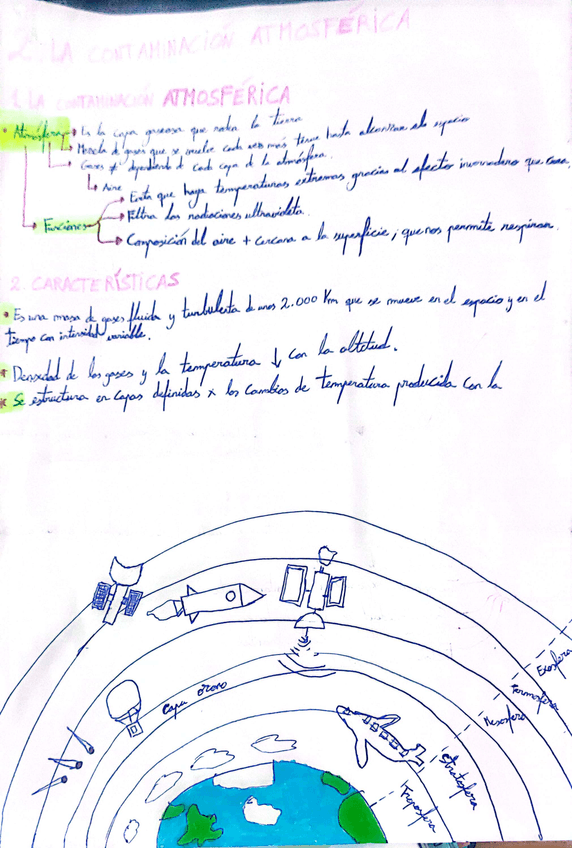 2. LA CONTAMINACIÓN ATMOSFÉRICA
1. LA CONTAMINACIÓN ATMOSFÉRICA
• Atmósfera → Es la capa gaseosa que rodea la tierra
→ Mezcla de gases que se vuelve cada vez más tenue hasta alcanzar el espacio
→ Gases ≠ dependiendo de cada capa de la atmósfera.
↳ Aire
→ Evita que haya temperaturas extremas gracias al efecto invernadero que crea.
→ Funciones → Filtra las radiaciones ultravioleta.
→ Composición del aire + cercana a la superficie, que nos permite respirar.
2. CARACTERÍSTICAS
• Es una masa de gases fluida y turbulenta de unos 2.000 Km que se mueve en el espacio y en el
tiempo con intensidad variable.
• Densidad de los gases y la temperatura ↓ con la altitud.
• Se estructura en capas definidas x los cambios de temperatura producida con la
Exosfera
Termosfera
Mesosfera
Capa ozono
Estratosfera
Troposfera